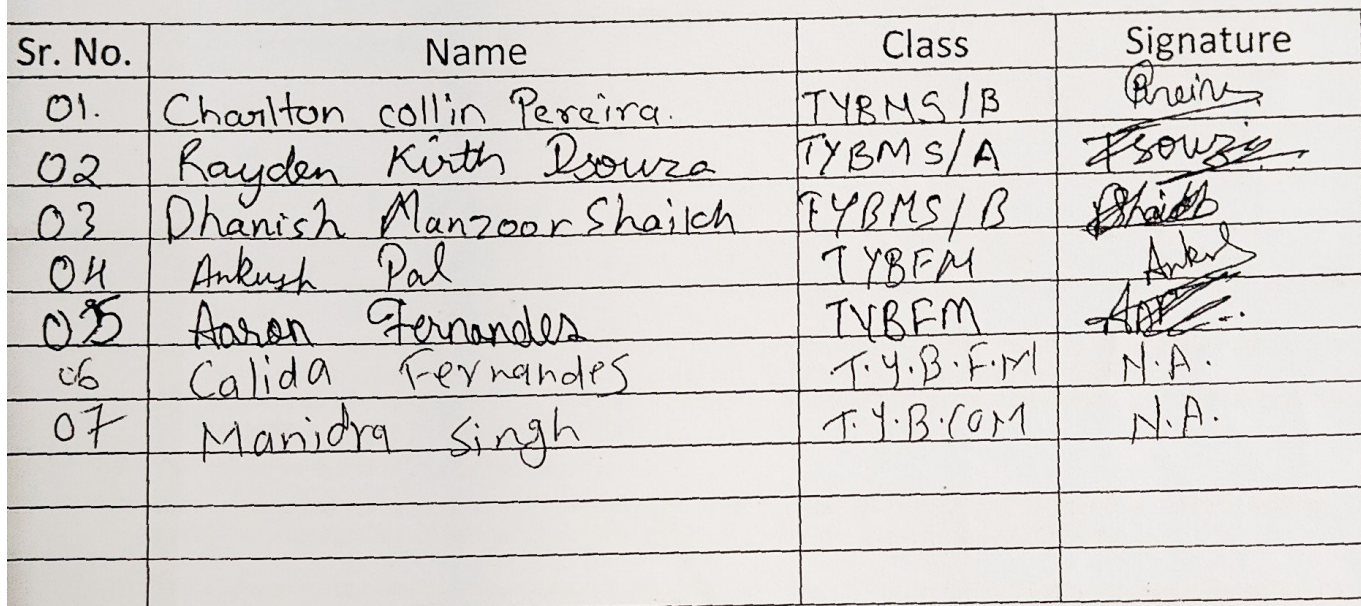 Sr. No. Name Class Signature
01. Charlton collin Pereira. TYBMS/B Pereira
02 Rayden Kirth Dsouza TYBMS/A Dsouza
03 Dhanish Manzoor Shaikh TYBMS/B Shaikh
04 Ankush Pal TYBFM Ankush
05 Aaron Fernandes TYBFM Aaron
06 Calida Fernandes T.Y.B.F.M N.A.
07 Manidra Singh T.Y.B.COM N.A.